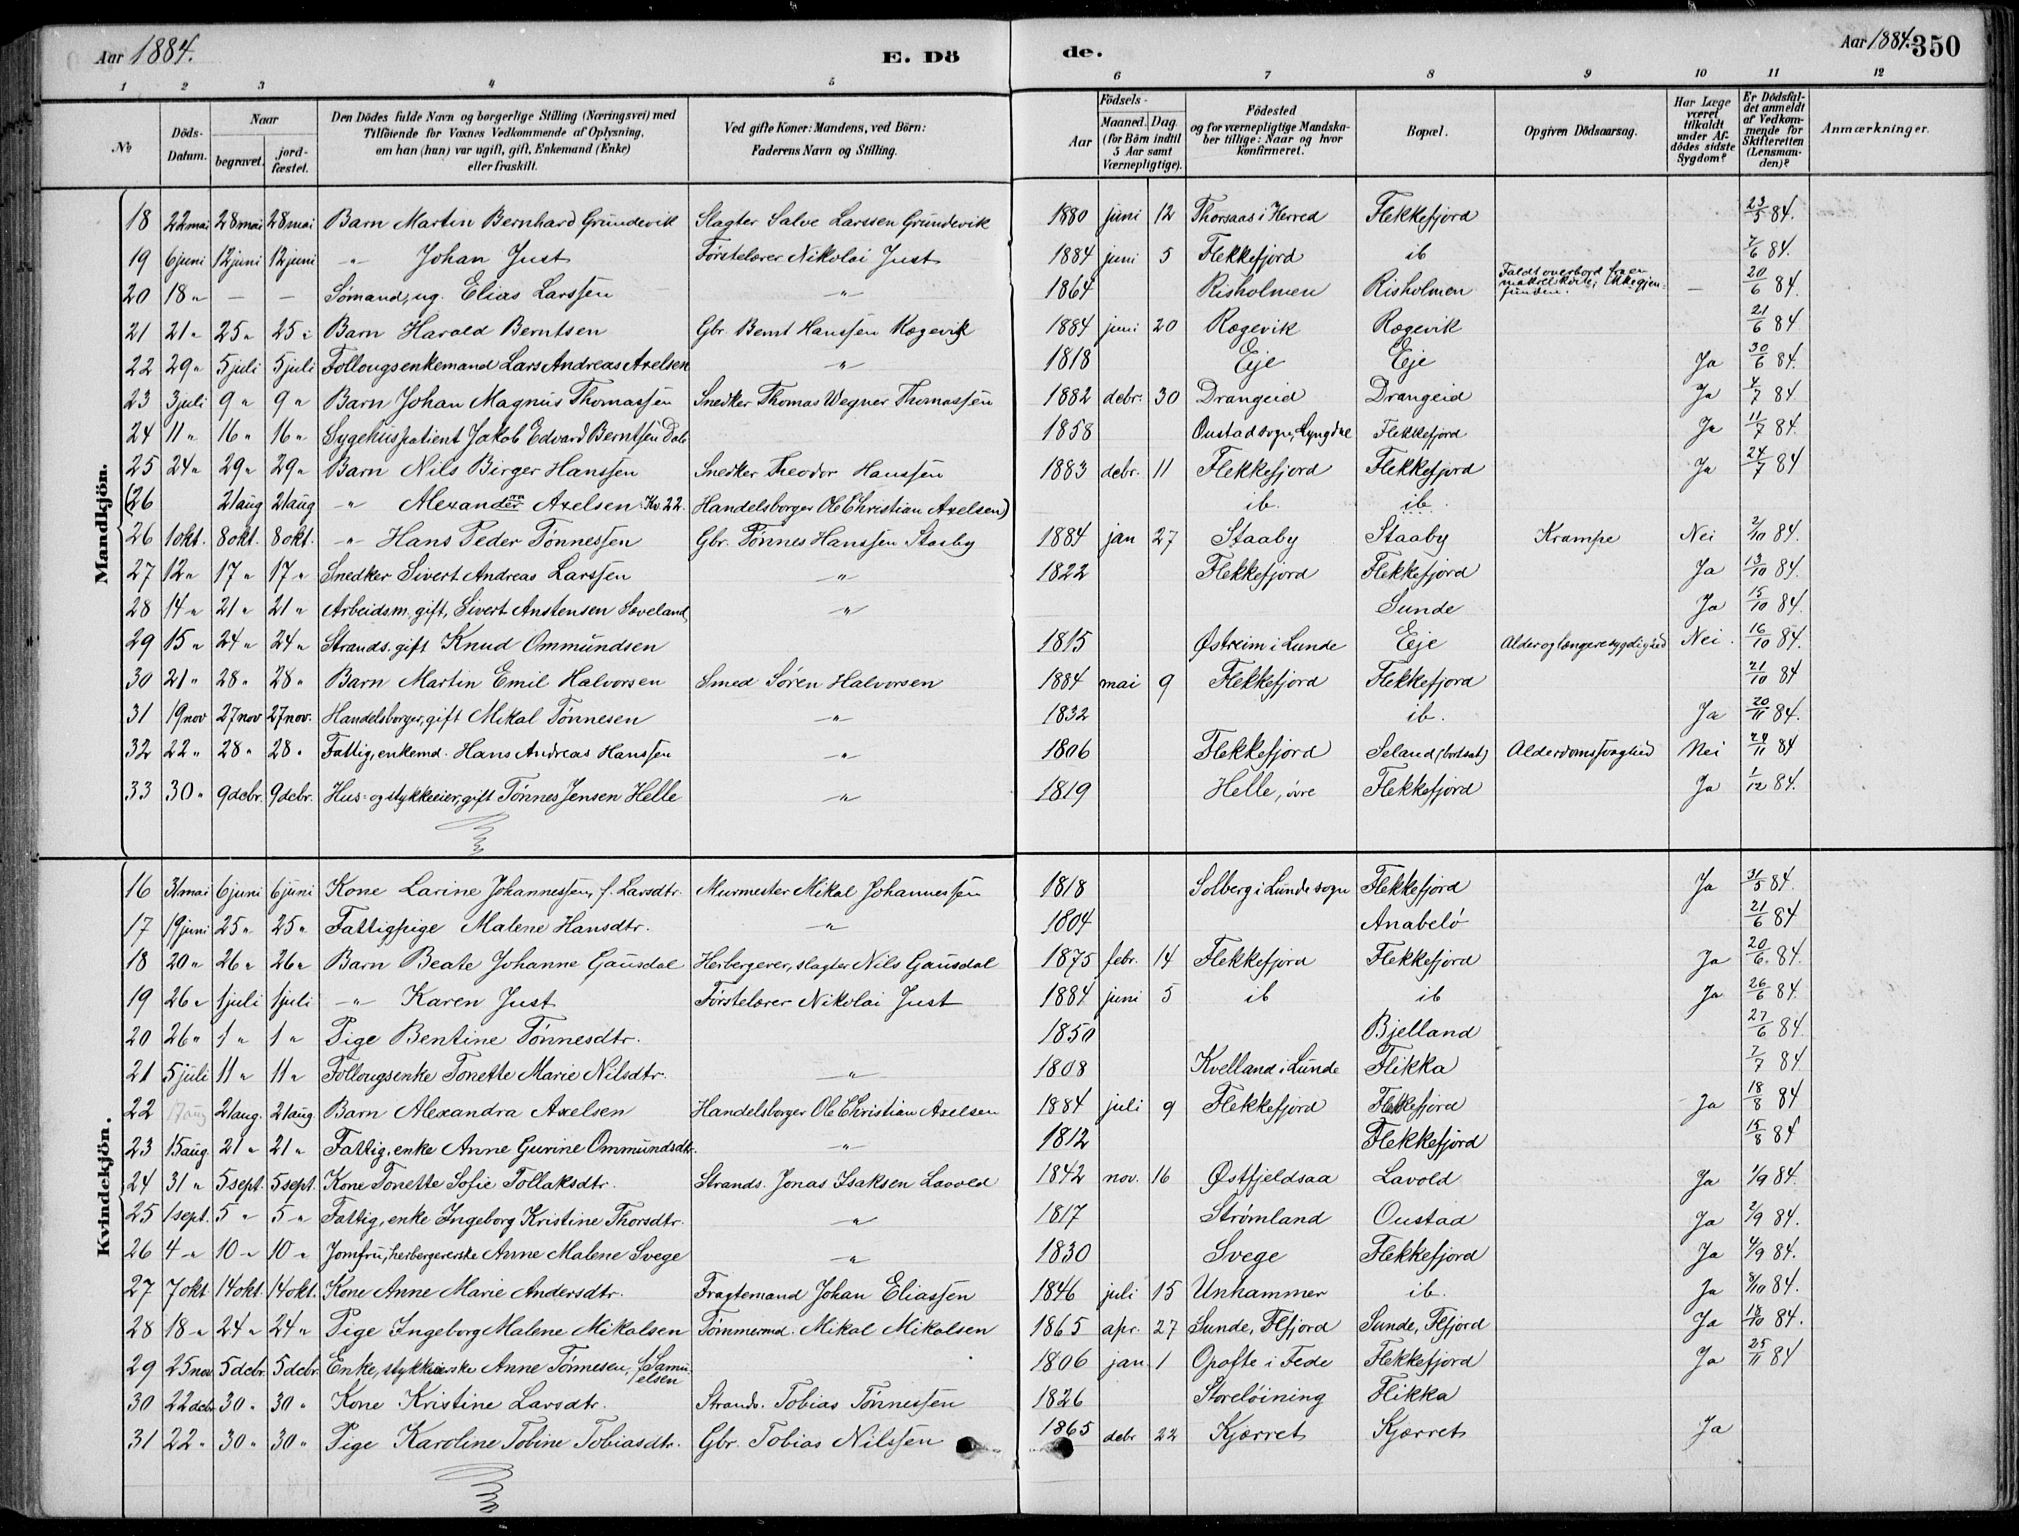 Aar 1884. E. Dö de. Aar 1884. 350
1 2 3 4 5 6 7 8 9 10 11 12
№ Döds-Datum. Naar begravet. jord-fæstet. Den Dödes fulde Navn og borgerlige Stilling (Næringsvei) med Tilföiende for Voxnes Vedkommende af Oplysning, om han (hun) var ugift, gift, Enkemand (Enke) eller fraskilt. Ved gifte Koner: Mandens, ved Börn: Faderens Navn og Stilling. Födsels- Aar Maaned. Dag (for Börn indtil 5 Aar samt Værnepligtige). Födested og for værnepligtige Mandska-ber tillige: Naar og hvor konfirmeret. Bopæl. Opgiven Dödsaarsag. Har Læge været tilkaldt under Af-dödes sidste Sygdom? Er Dödsfal-det anmeldt af Vedkom-mende for Skifteretten (Lensman-den)? Anmærkninger.
Mandkjön.
18 22 mai 28 mai 28 mai Barn Martin Bernhard Grundevik Slagter Salve Larssen Grundevik 1880 juni 12 Thorsaas i Herred Flekkefjord 23/5 84.
19 6 juni 12 juni 12 juni " Johan Just Førstelærer Nikolai Just 1884 juni 5 Flekkefjord ib 7/6 84.
20 18 " — — Sømand, ug. Elias Larssen " 1864 Risholmen Risholmen Faldt overbord fra en makrelskøite; ikke gjen-funden. — 20/6 84.
21 21 " 25 " 25 " Barn Harald Berntsen Gbr. Bernt Hanssen Rogevik 1884 juni 20 Rogevik Rogevik 21/6 84
22 29 " 5 juli 5 juli Follougsenkemand Lars Andreas Axelsen " 1818 Eje Eje Ja 30/6 84.
23 3 juli 9 " 9 " Barn Johan Magnus Thomassen Snedker Thomas Wegner Thomassen 1882 debr. 30 Drangeid Drangeid Ja 4/7 84.
24 11 " 16 " 16 " Sygehuspatient Jakob Edvard Berntsen 1858 Oustad sogn, Lyngdal Flekkefjord Ja 11/7 84.
25 24 " 29 " 29 " Barn Nils Birger Hanssen Snedker Theodor Hanssen 1883 debr. 11 Flekkefjord Flekkefjord Ja 24/7 84
(26 21 aug 21 aug " Alexander Axelsen Kv. 22. Handelsborger Ole Christian Axelsen) ib. ib.
26 1 okt. 8 okt. 8 okt. " Hans Peder Tønnessen Gbr. Tønnes Hanssen Staaby 1884 jan 27 Staaby Staaby Krampe Nei 2/10 84.
27 12 " 17 " 17 " Snedker Sivert Andreas Larssen " 1822 Flekkefjord Flekkefjord Ja 13/10 84.
28 14 " 21 " 21 " Arbeidsm. gift, Sivert Anstensen Soveland " Sunde Ja 15/10 84.
29 15 " 24 " 24 " Strands. gift Knud Ommundsen 1815 Østreim i Lunde Eje Alder og længere sygdighed Nei. 16/10 84.
30 21 " 28 " 28 " Barn Martin Emil Halvorsen Smed Søren Halvorsen 1884 mai 9 Flekkefjord Flekkefjord 21/10 84
31 19 nov 27 nov 27 nov. Handelsborger, gift Mikal Tønnesen " 1832 ib. Ja 20/11 84.
32 22 " 28 " 28 " Fattig, enkemd. Hans Andreas Hanssen " 1806 Flekkefjord Seland (bortsat) Alderdomssvaghed Nei 24/11 84
33 30 " 9 debr. 9 debr. Hus- og stykkeeier, gift Tønnes Jensen Helle " 1819 Helle, øvre Flekkefjord Ja 1/12 84.
Kvindekjön.
16 31 mai 6 juni 6 juni Kone Larine Johannessen, f. Larsdtr. Murmester Mikal Johannessen 1818 Solberg i Lunde sogn Flekkefjord Ja 31/5 84.
17 19 juni 25 " 25 " Fattigpige Malene Hansdtr. " 1804 Anabelø 21/6 84
18 20 " 26 " 26 " Barn Beate Johanne Gausdal Herbergerer, slagter Nils Gausdal 1875 febr. 14 Flekkefjord Flekkefjord Ja 20/6. 84.
19 26 " 1 juli 1 juli " Karen Just Førstelærer Nikolai Just 1884 juni 5 ib ib Ja 26/6 84.
20 26 " 1 " 1 " Pige Bentine Tønnesdtr. 1850 Bjelland 27/6 84.
21 5 juli 11 " 11 " Follougsenke Tonette Marie Nilsdtr. " 1808 Kvelland i Lunde Flikka 7/7 84
22 17 aug 21 aug. 21 aug Barn Alexandra Axelsen Handelsborger Ole Christian Axelsen 1884 juli 9 Flekkefjord Flekkefjord Ja 18/8 84
23 15 aug. 21 " 21 " Fattig, enke Anne Gurine Ommundsdtr. " 1812 Flekkefjord 15/8 84
24 31 " 5 sept. 5 sept. Kone Tonette Sofie Tollaksdtr. Strands. Jonas Isaksen Lavold 1842 nov. 16 Østfjeldsaa Lavold Ja 1/9 84.
25 1 sept. 5 " 5 " Fattig, enke Ingeborg Kristine Thorsdtr. " 1817 Strømland Oustad Ja 2/9 84.
26 4 " 10 " 10 " Jomfru, herbergererske Anne Malene Svege " 1830 Svege Flekkefjord Ja 4/9 84.
27 7 okt 14 okt. 14 okt. Kone Anne Marie Andersdtr. Fragtemand Johan Eliassen 1846 juli 15 Unhammer ib. Ja 8/10 84.
28 18 " 24 " 24 " Pige Ingeborg Malene Mikalsen Tømmermd. Mikal Mikalsen 1865 apr. 27 Sunde, Flfjord Sunde, Flfjord Ja 18/10 84.
29 25 nov 5 debr. 5 debr. Enke, stykkeierske Anne Tønnesen, f. Samu-elsen 1806 jan. 1 Opofte i Fede Flekkefjord Ja 25/11 84
30 22 debr. 30 " 30 " Kone Kristine Larsdtr. Strands. Tobias Tønnessen 1826 Storeløining Flikka
31 22 " 30 " 30 " Pige Karoline Tobine Tobiasdtr. Gbr. Tobias Nilssen 1865 debr 22 Kjørret Kjørret Ja